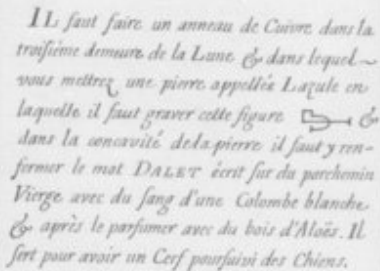 IL faut faire un anneau de Cuivre dans la
troisiéme demeure de la Lune & dans lequel
vous mettrez une pierre appellée Lazule en
laquelle il faut graver cette figure &
dans la concavité de la pierre il faut y ren-
fermer le mot DALET écrit sur du parchemin
Vierge avec du sang d'une Colombe blanche
& après le parfumer avec du bois d'Aloës. Il
sert pour avoir un Cerf poursuivi des Chiens.